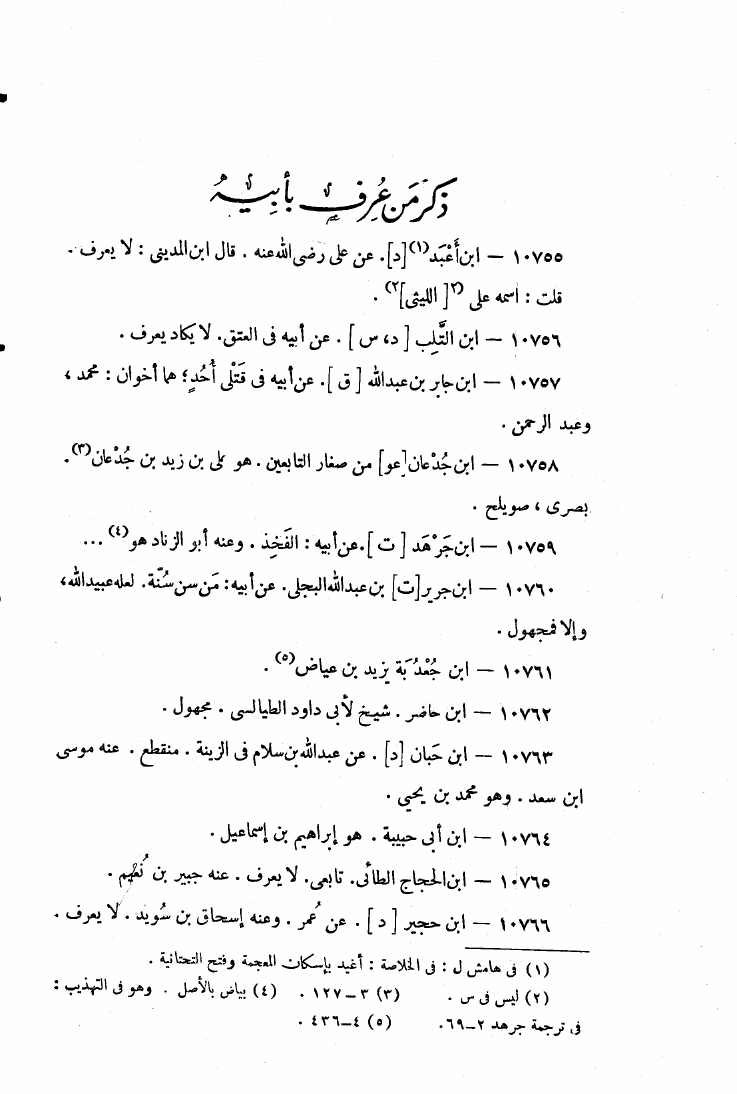 ذكر من عُرف بأبيه
١٠٧٥٥ — ابن أَعْبَد(١)[د]. عن على رضى الله عنه . قال ابن المدينى : لا يعرف .
قلت : اسمه على (٢[ الليثى ]٢) .
١٠٧٥٦ — ابن التَّلِب [ د، س ] . عن أبيه فى العتق. لا يكاد يعرف .
١٠٧٥٧ — ابن جابر بن عبدالله [ ق ]. عن أبيه فى قَتْلَى أُحُدٍ؛ هما أخوان : محمد ،
وعبد الرحمن .
١٠٧٥٨ — ابن جُدْعان [عو] من صغار التابعين . هو على بن زيد بن جُدْعان(٣).
بصرى ، صويلح .
١٠٧٥٩ — ابن جَرْهَد [ ت ]. عن أبيه : الفَخِذ . وعنه أبو الزناد هو(٤) ...
١٠٧٦٠ — ابن جرير[ت] بن عبدالله البجلى. عن أبيه: مَن سن سُنّة. لعله عبيد الله،
وإلا فمجهول .
١٠٧٦١ — ابن جُعْدُبَة يزيد بن عياض(٥) .
١٠٧٦٢ — ابن حاضر . شيخ لأبى داود الطيالسى . مجهول .
١٠٧٦٣ — ابن حَبان [د] . عن عبدالله بن سلام فى الزينة . منقطع . عنه موسى
ابن سعد . وهو محمد بن يحيى .
١٠٧٦٤ — ابن أبى حبيبة . هو إبراهيم بن إسماعيل .
١٠٧٦٥ — ابن الحجاج الطائى. تابعى. لا يعرف . عنه جبير بن نُعَيم .
١٠٧٦٦ — ابن حجير [ د ] . عن عُمر . وعنه إسحاق بن سُويد . لا يعرف .
(١) فى هامش ل : فى الخلاصة : أغيد بإسكان المعجمة وفتح التحتانية .
(٢) ليس فى س . (٣) ٣ — ١٢٧ . (٤) بياض بالأصل . وهو فى التهذيب :
فى ترجمة جرهد ٢ — ٦٩. (٥) ٤ — ٤٣٦ .